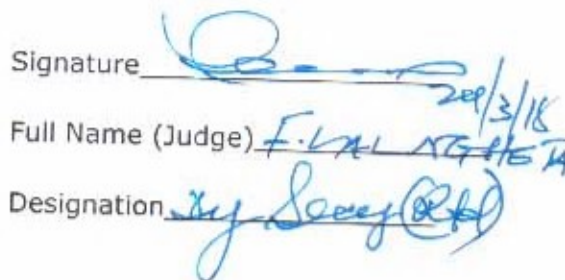 Signature
/3/18
Full Name (Judge) F. LAL NGHETA
Designation Dy Secy (Rtd)